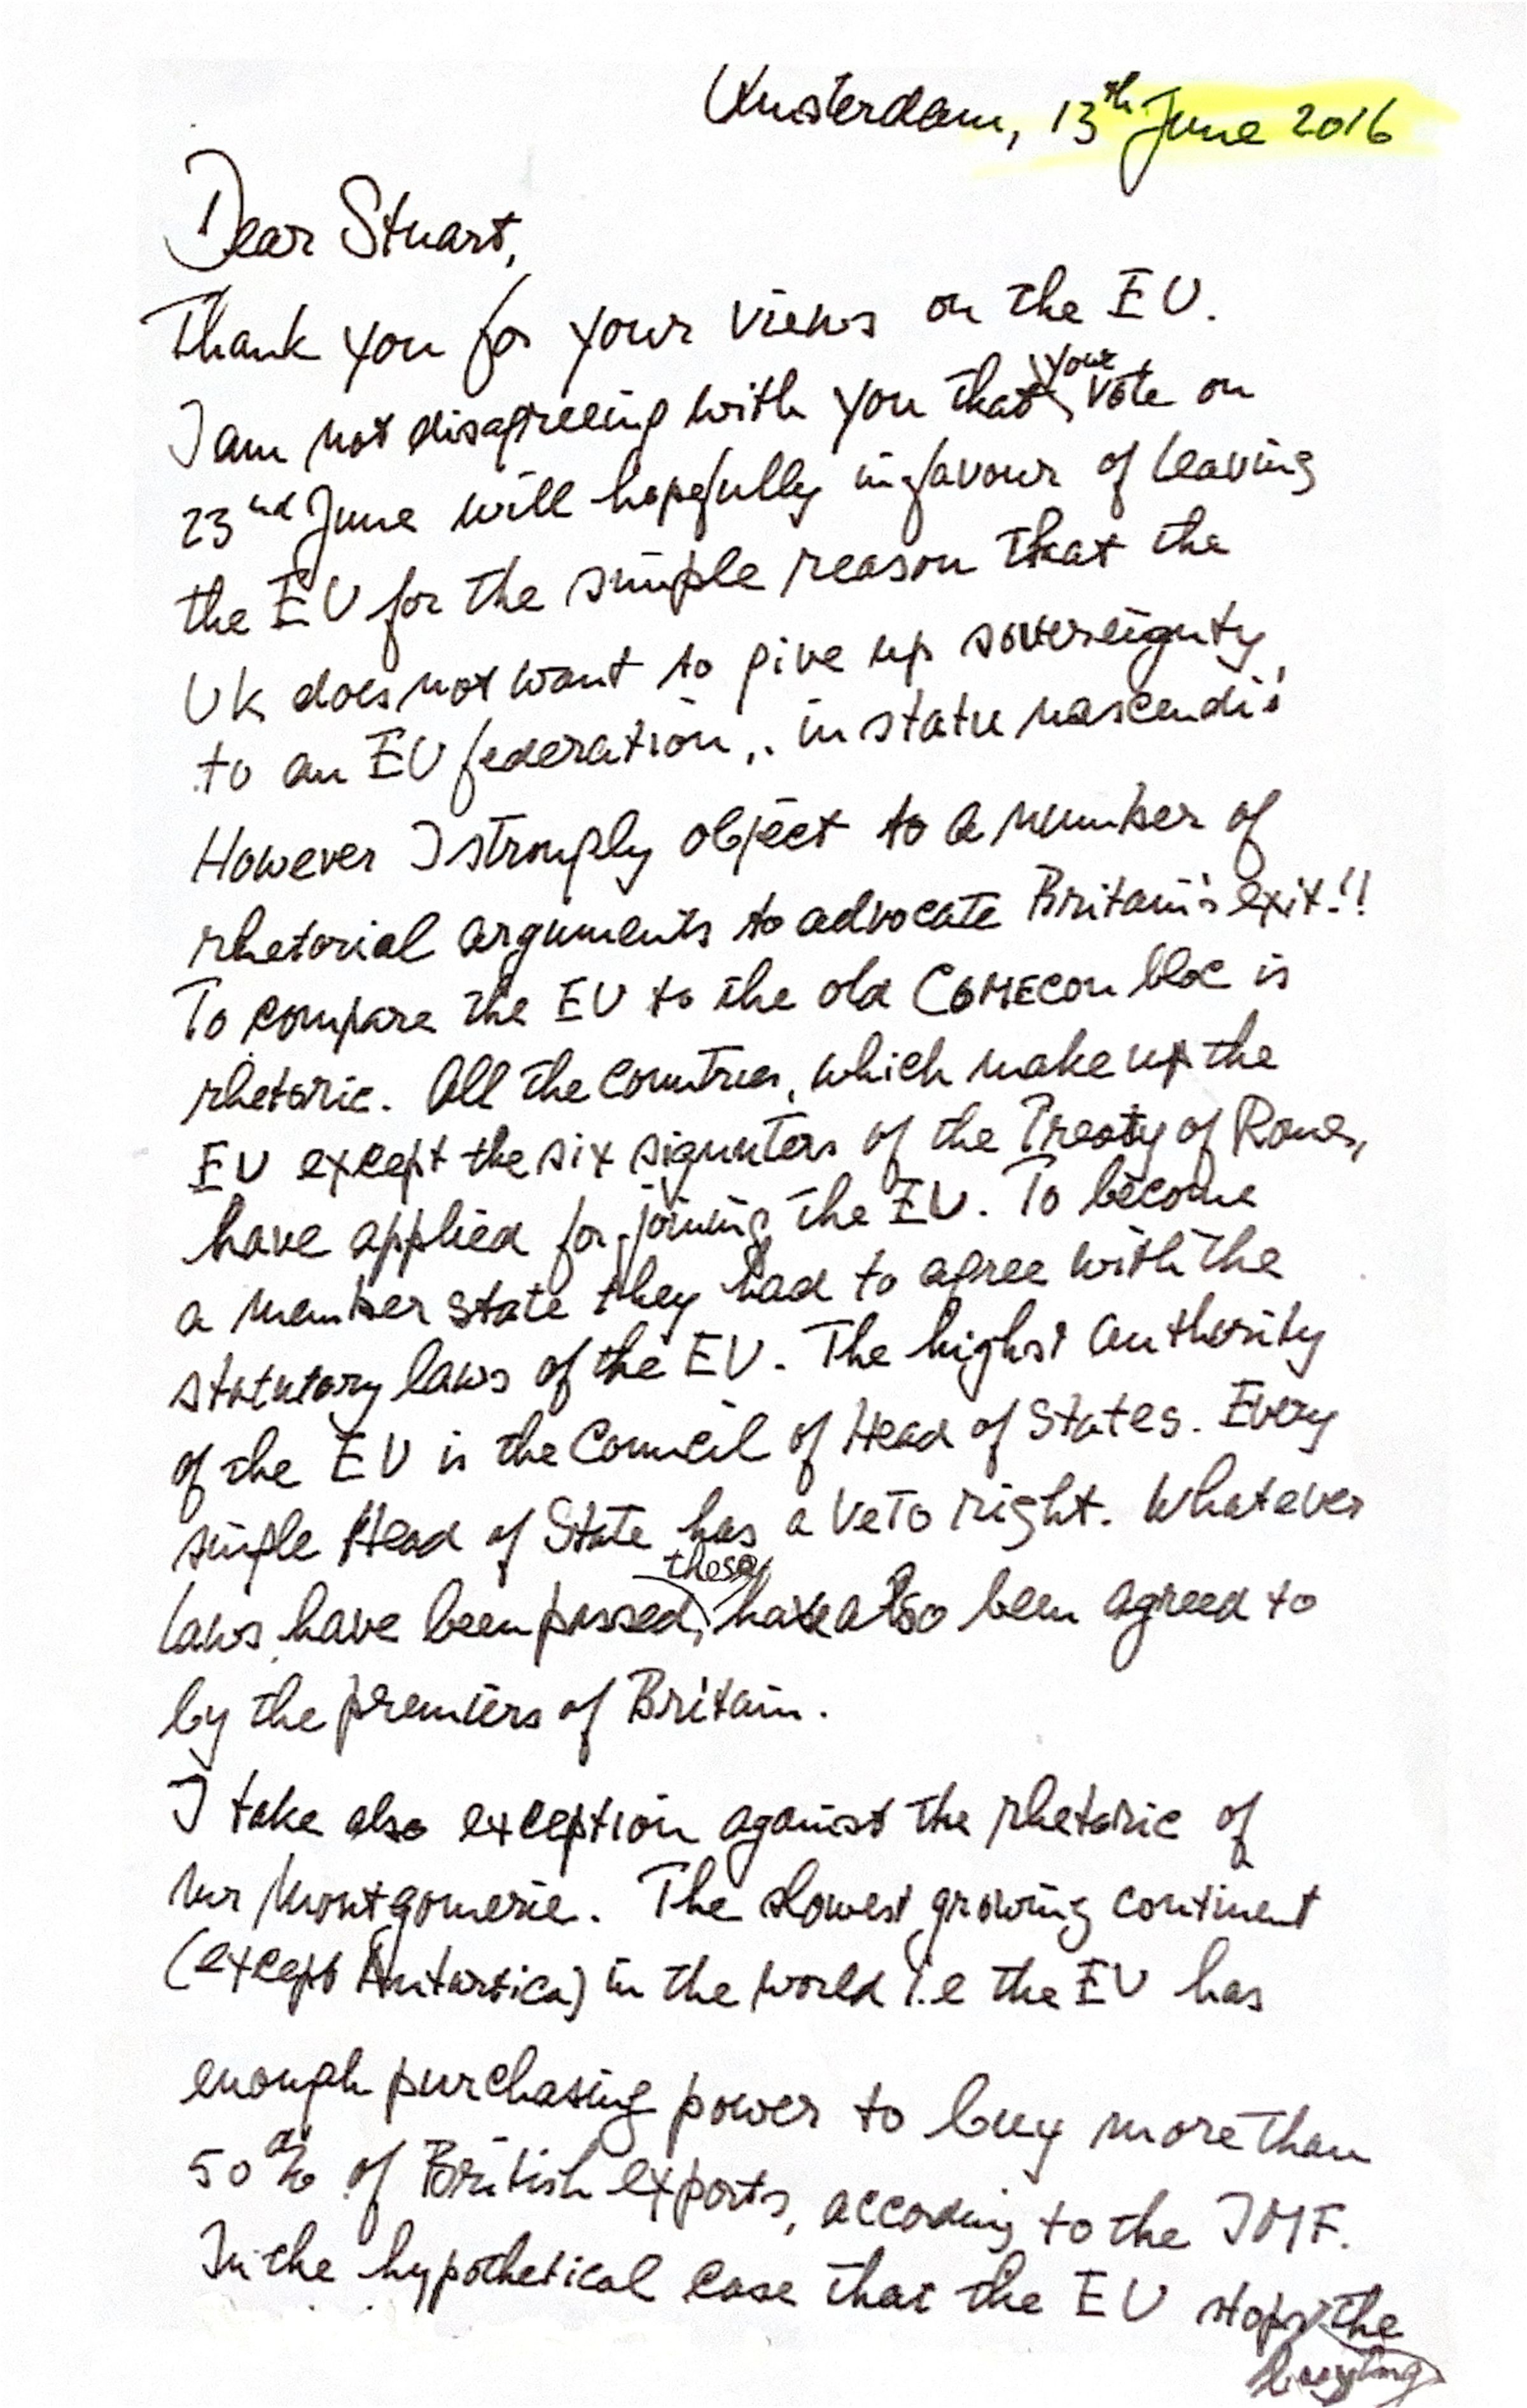 Amsterdam, 13th June 2016
Dear Stuart,
Thank you for your views on the EU.
I am not disagreeing with you that your vote on
23nd June will hopefully in favour of leaving
the EU for the simple reason that the
UK does not want to give up sovereignty
to an EU federation,, in statu nascendi"
However I strongly object to a number of
rhetorial arguments to advocate Britain's exit.!!
To compare the EU to the old COMECON bloc is
rhetoric. All the countries, which make up the
EU except the six signuters of the Treaty of Rome,
have applied for joining the EU. To become
a member state they had to agree with the
statutory laws of the EU. The highst authority
of the EU is the Council of Head of States. Every
single Head of State has a veto right. Whatever
laws have been passed, these have also been agreed to
by the premiers of Britain.
I take also exception against the rhetoric of
Mr Montgomerie. The slowest growing continent
(except Antartica) in the world i.e the EU has
enough purchasing power to buy more than
50% of British exports, accoding to the IMF.
In the hypothetical case that the EU stops the
buying